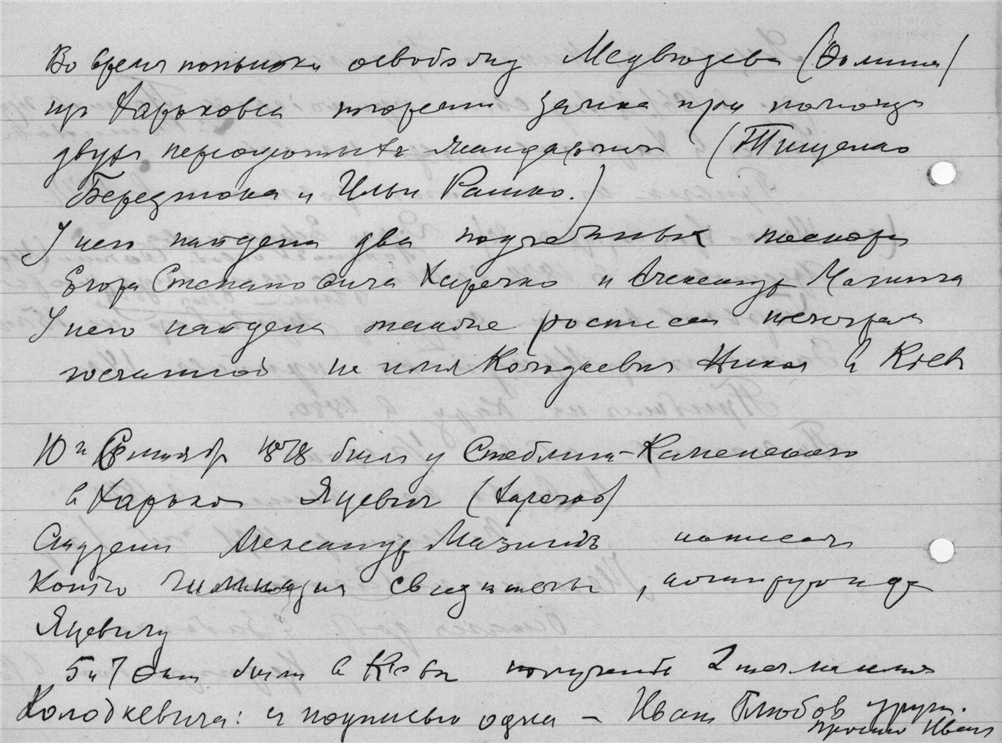 Во время попытки освободить Медведева (Фомина)
из Харьковск тюремн замка при помощи
двух переодетых жандармами (Тищенко
Березнюка и Ильи Рашко.)
У него найдены два подложных паспорта
Егора Степановича Харечко и Александр Мазинга
У него найдена также росписка телеграм
посланной на имя Колодкевич Никол в Киев
10го Октября 1878 был у Стеблин-Каменского
в Харькове Яцевич (Харечко)
Студент Александр Мазингъ написал
копию гимназич свидетельства,
Яцевичу
5 и 7 Окт были в Киеве получены 2 телеграммы
Колодкевича: и подписью одна – Иван Глюбов друг.
просто Иван